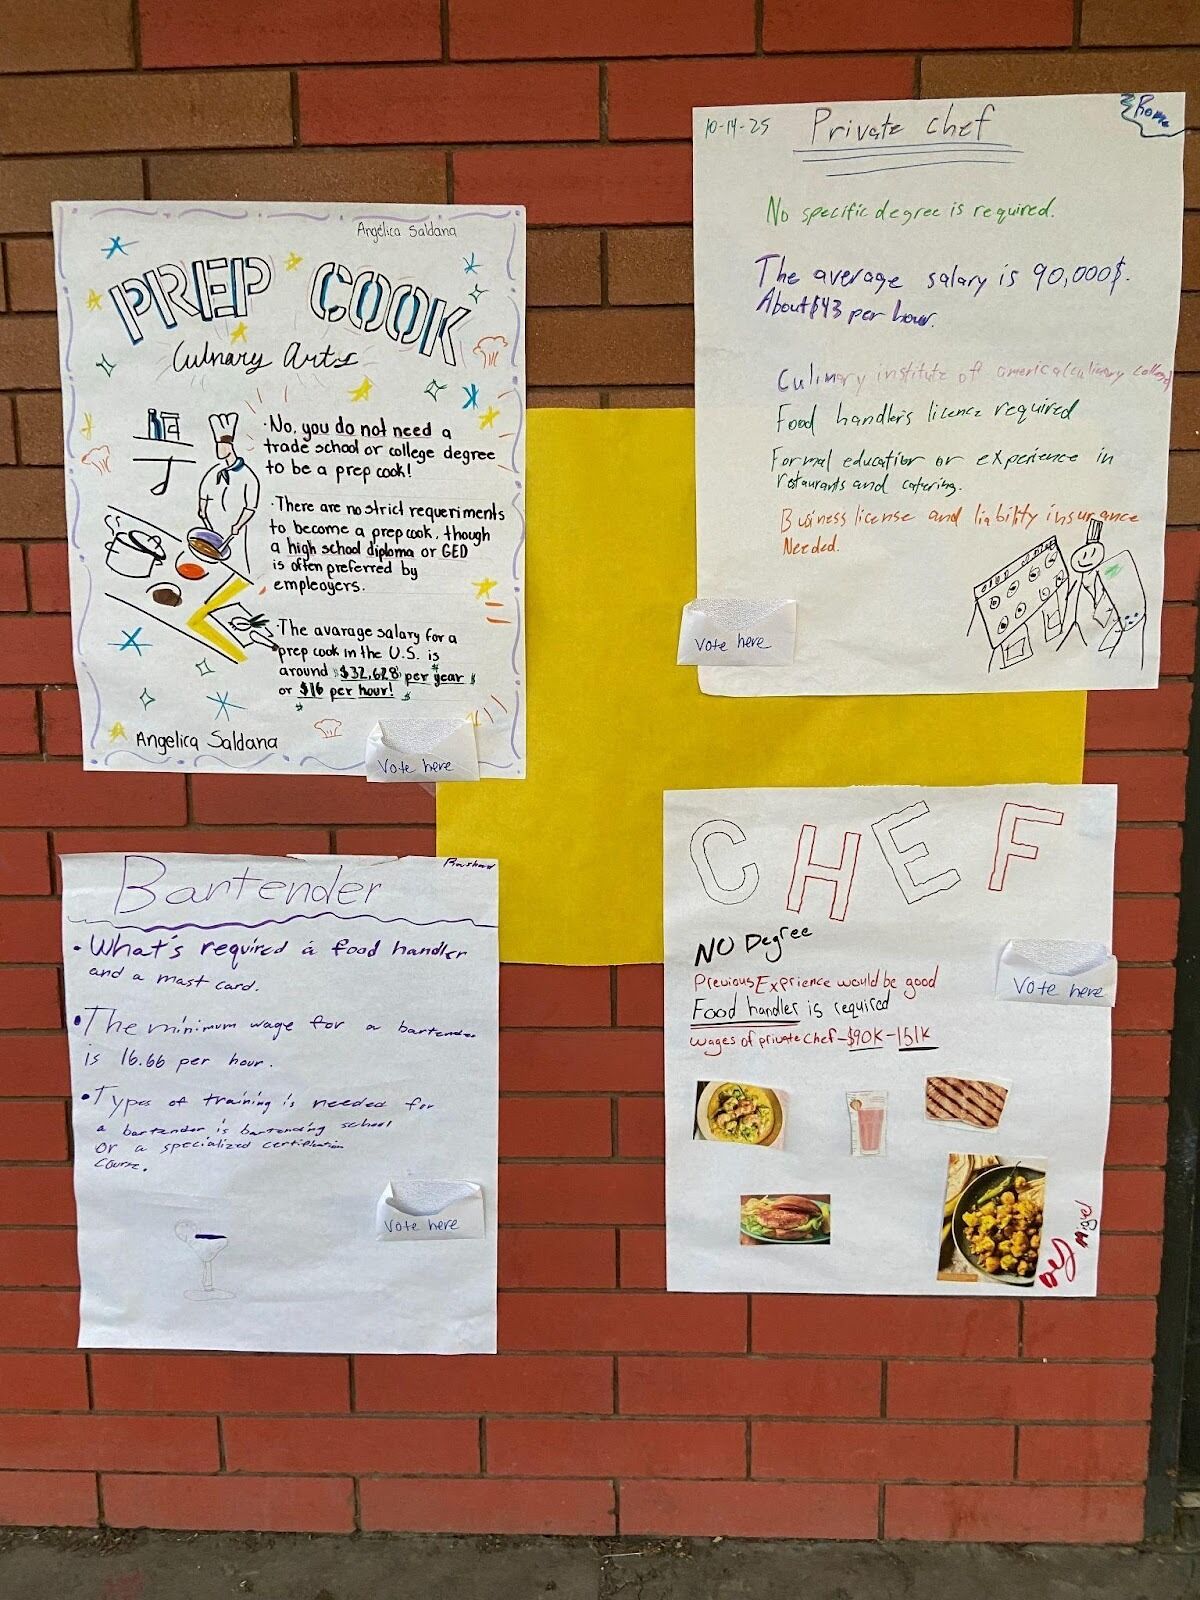 Angelica Saldana
PREP COOK
Culinary Arts
· No, you do not need a
trade school or college degree
to be a prep cook!
· There are no strict requeriments
to become a prep cook, though
a high school diploma or GED
is often preferred by
empleoyers.
· The avarage salary for a
prep cook in the U.S. is
around $32,628 per year
or $16 per hour!
Angelica Saldana
Vote here
10-14-25
Private chef
Rome
No specific degree is required.
The average salary is 90,000$.
About $43 per hour.
Culinary institute of america culinary college
Food handlers licence required
Formal education or experience in
restaurants and catering.
Business license and liability insurance
Needed.
Vote here
Bartender
• What's required is food handler
and a mast card.
• The minimum wage for a bartender
is 16.66 per hour.
• Types of training is needed for
a bartender is bartending school
or a specialized certification
course.
Vote here
CHEF
NO Degree
Previous Exprience would be good
Food handler is required
wages of private chef - $90K - 151K
Vote here
Miguel